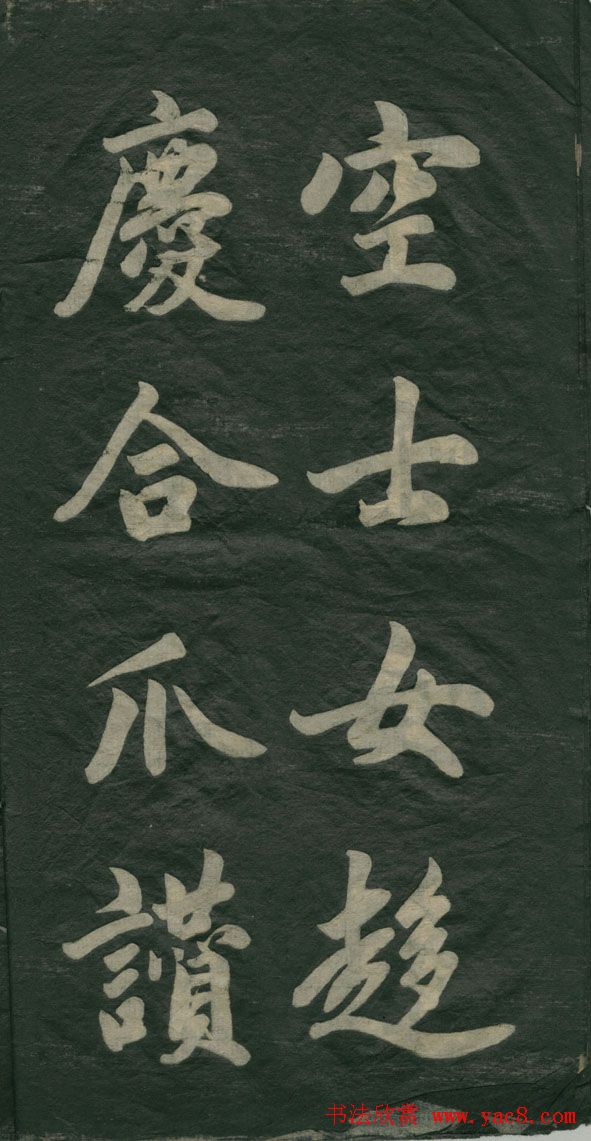 空士女趍
慶合爪讃
书法欣赏 www.yac8.com